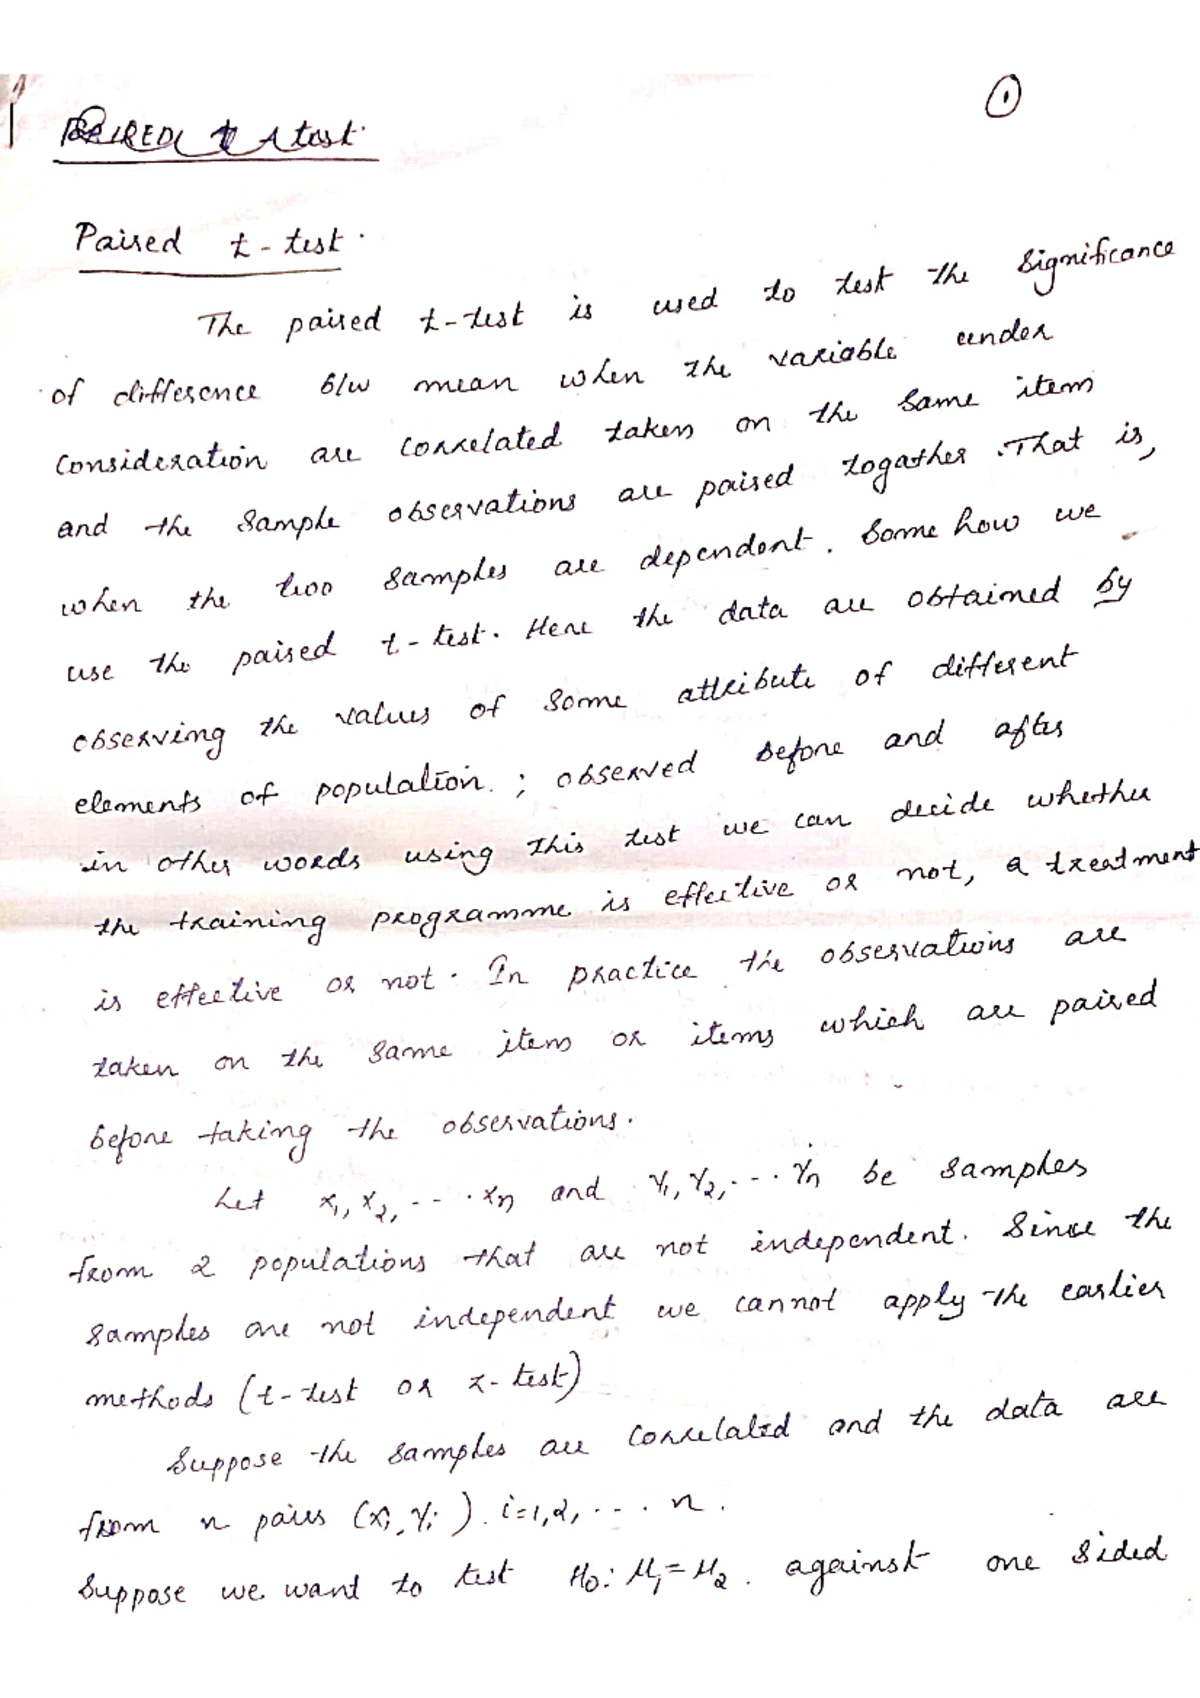 ①
PAIRED t A test.
Paired t - test.
The paired t-test is used to test the significance
of difference b/w mean when the variable under
consideration are correlated taken on the same item
and the sample observations are paired togather. That is,
when the two samples are dependent. Some how we
use the paired t-test. Here the data are obtained by
observing the values of some attribute of different
elements of population. ; observed before and after
in other words using this test we can decide whether
the training programme is effective or not, a treatment
is effective or not. In practice the observations are
taken on the same item or items which are paired
before taking the observations.
Let x1, x2, - - - . xn and Y1, Y2, - - - Yn be samples
from 2 populations that are not independent. Since the
samples are not independent we cannot apply the earlier
methods (t-test or z-test)
Suppose the samples are correlated and the data are
from n pairs (xi, Yi ). i=1,2, - - - . n .
Suppose we want to test H0: μ1 = μ2. against one sided